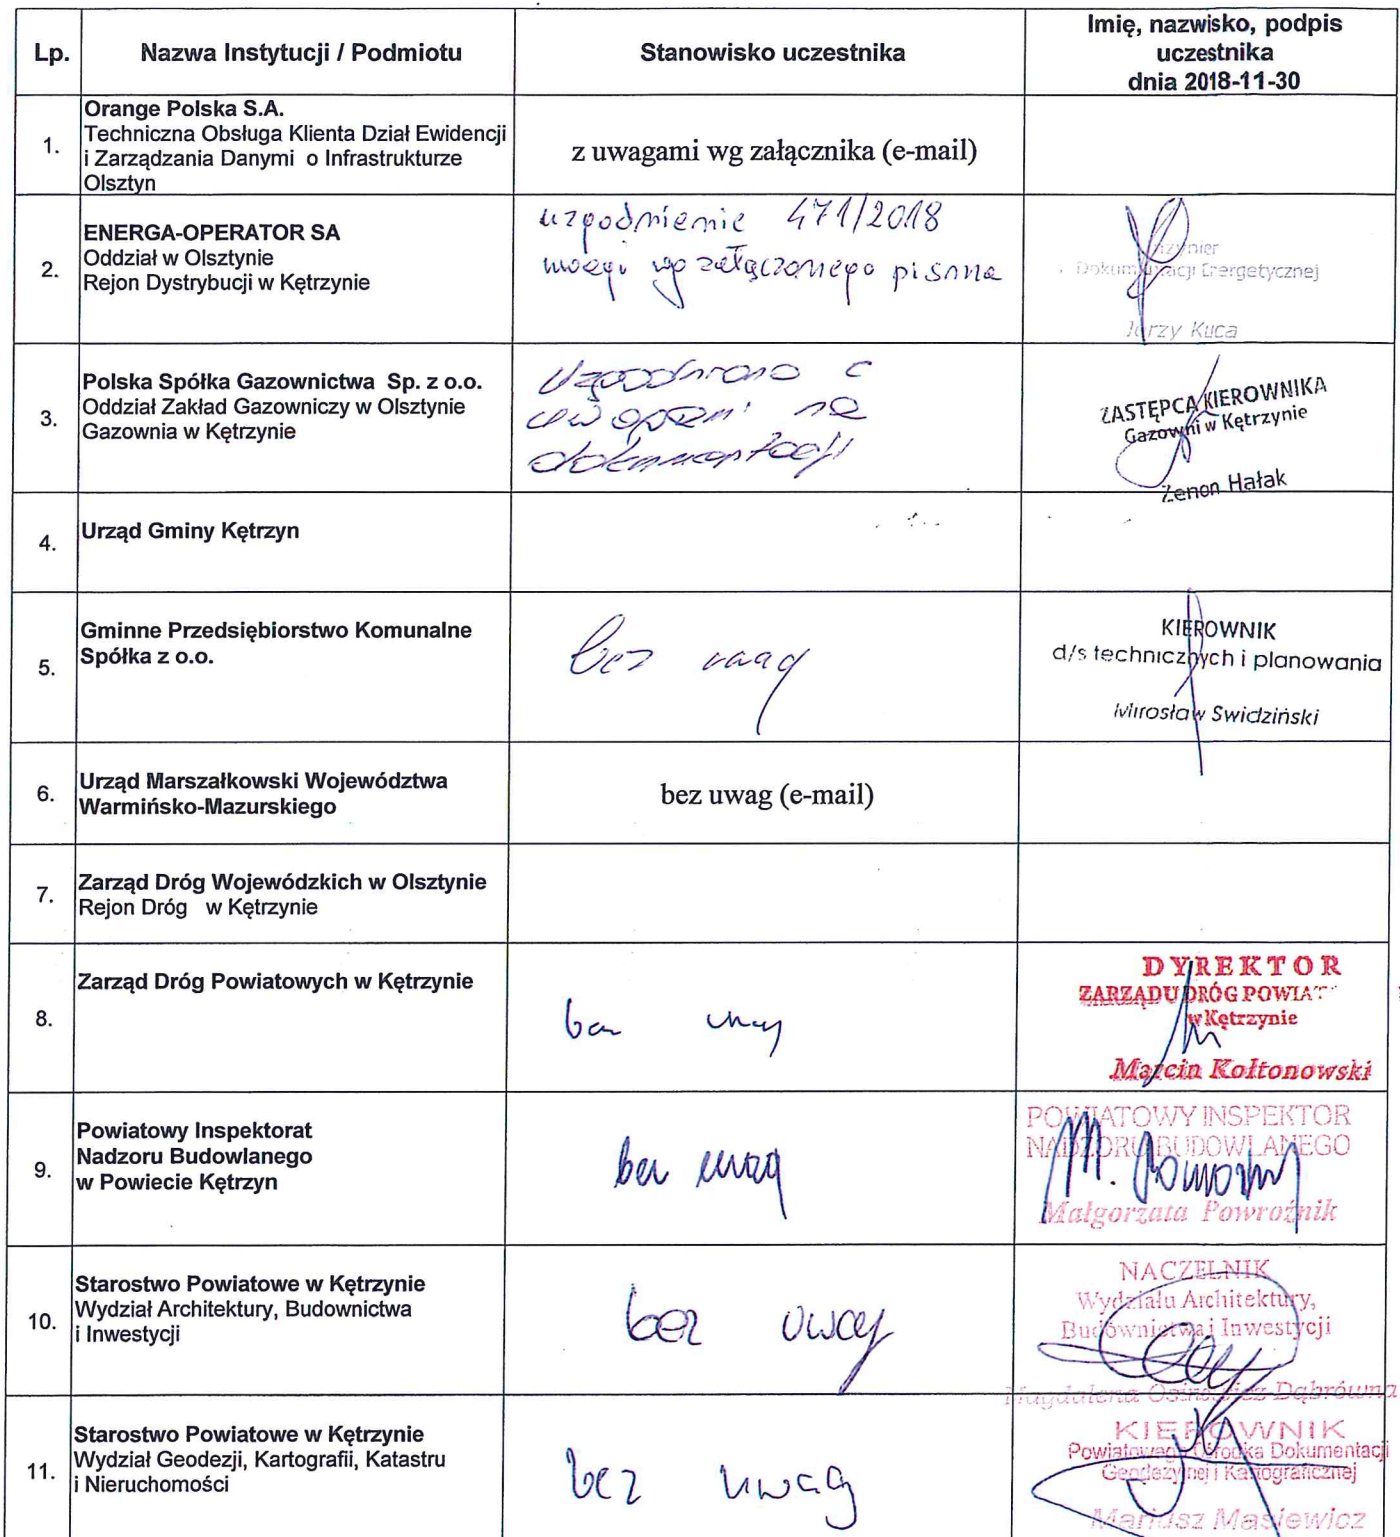 Lp.
Nazwa Instytucji / Podmiotu
Stanowisko uczestnika
Imię, nazwisko, podpis
uczestnika
dnia 2018-11-30
1.
Orange Polska S.A.
Techniczna Obsługa Klienta Dział Ewidencji
i Zarządzania Danymi o Infrastrukturze
Olsztyn
z uwagami wg załącznika (e-mail)
2.
ENERGA-OPERATOR SA
Oddział w Olsztynie
Rejon Dystrybucji w Kętrzynie
uzgodnienie 471/2018
uwagi wg załączonego pisma
Inżynier
Dokumentacji Energetycznej
Jerzy Kuca
3.
Polska Spółka Gazownictwa Sp. z o.o.
Oddział Zakład Gazowniczy w Olsztynie
Gazownia w Kętrzynie
Uzgodniono z
uwagami na
dokumentacji
ZASTĘPCA KIEROWNIKA
Gazowni w Kętrzynie
Zenon Hałak
4.
Urząd Gminy Kętrzyn
5.
Gminne Przedsiębiorstwo Komunalne
Spółka z o.o.
bez uwag
KIEROWNIK
d/s technicznych i planowania
Mirosław Swidziński
6.
Urząd Marszałkowski Województwa
Warmińsko-Mazurskiego
bez uwag (e-mail)
7.
Zarząd Dróg Wojewódzkich w Olsztynie
Rejon Dróg w Kętrzynie
8.
Zarząd Dróg Powiatowych w Kętrzynie
bez uwag
DYREKTOR
ZARZĄDU DRÓG POWIAT
w Kętrzynie
Marcin Kołtonowski
9.
Powiatowy Inspektorat
Nadzoru Budowlanego
w Powiecie Kętrzyn
bez uwag
POWIATOWY INSPEKTOR
NADZORU BUDOWLANEGO
M.
Małgorzata Powroźnik
10.
Starostwo Powiatowe w Kętrzynie
Wydział Architektury, Budownictwa
i Inwestycji
bez uwag
NACZELNIK
Wydziału Architektury,
Budownictwa i Inwestycji
Magdalena Dąbrówna
11.
Starostwo Powiatowe w Kętrzynie
Wydział Geodezji, Kartografii, Katastru
i Nieruchomości
bez uwag
KIEROWNIK
Powiatowego Ośrodka Dokumentacji
Geodezyjnej i Kartograficznej
Mariusz Masiewicz